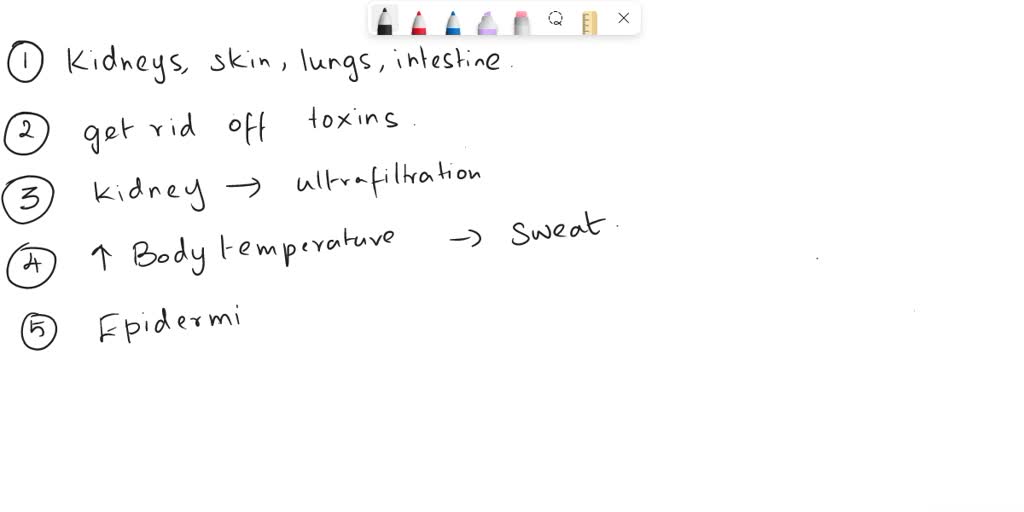 ① Kidneys, skin, lungs, intestine.
② get rid off toxins.
③ Kidney → ultrafiltration
④ ↑ Body temperature → Sweat.
⑤ Epidermi